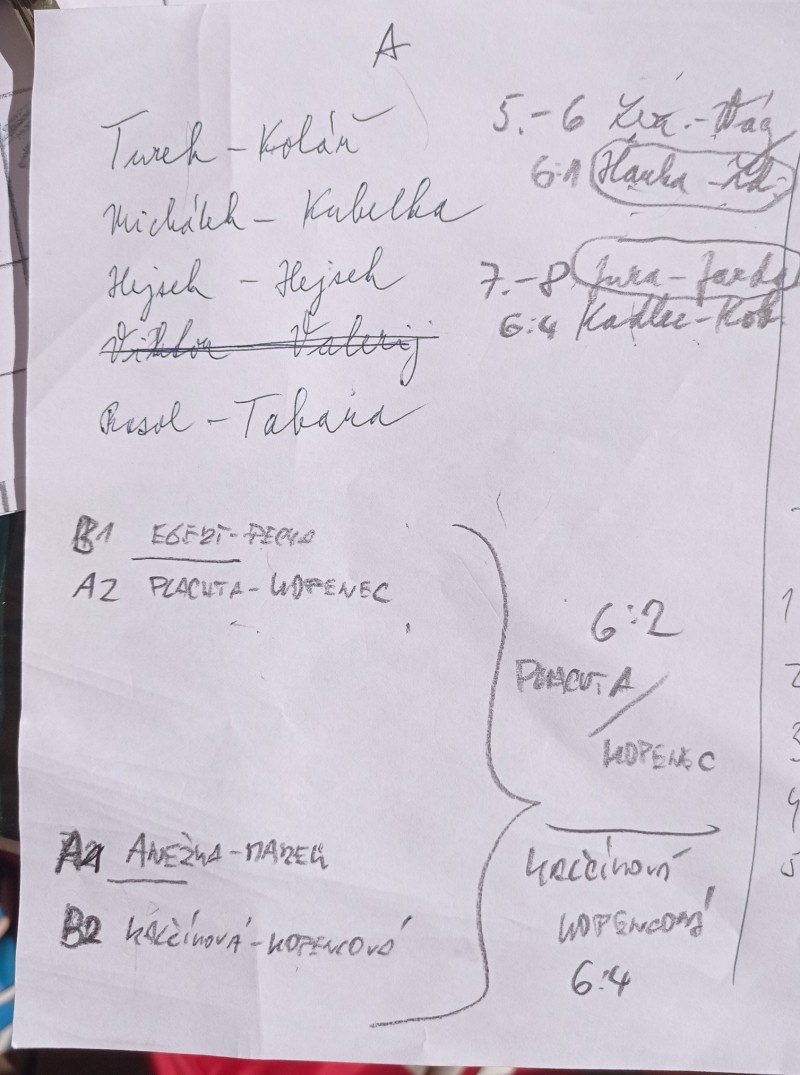 A
Turek - Kolář
Michálek - Kubelka
Hejsek - Hejsek
Viktor Valerij
Rosol - Tabara
5.-6
6:1 Hanka - Zd.
7.-8 Jura - Jarda
6:4 Kadlec - Kob
B1
A2 PLACUTA - KOPENEC
6:2
PLACUTA /
KOPENEC
A1 ANEŽKA - MAREK
B2 KALČÍNOVÁ - KOPENCOVÁ
KALČÍNOVÁ
KOPENCOVÁ
6:4
1
2
3
4
5